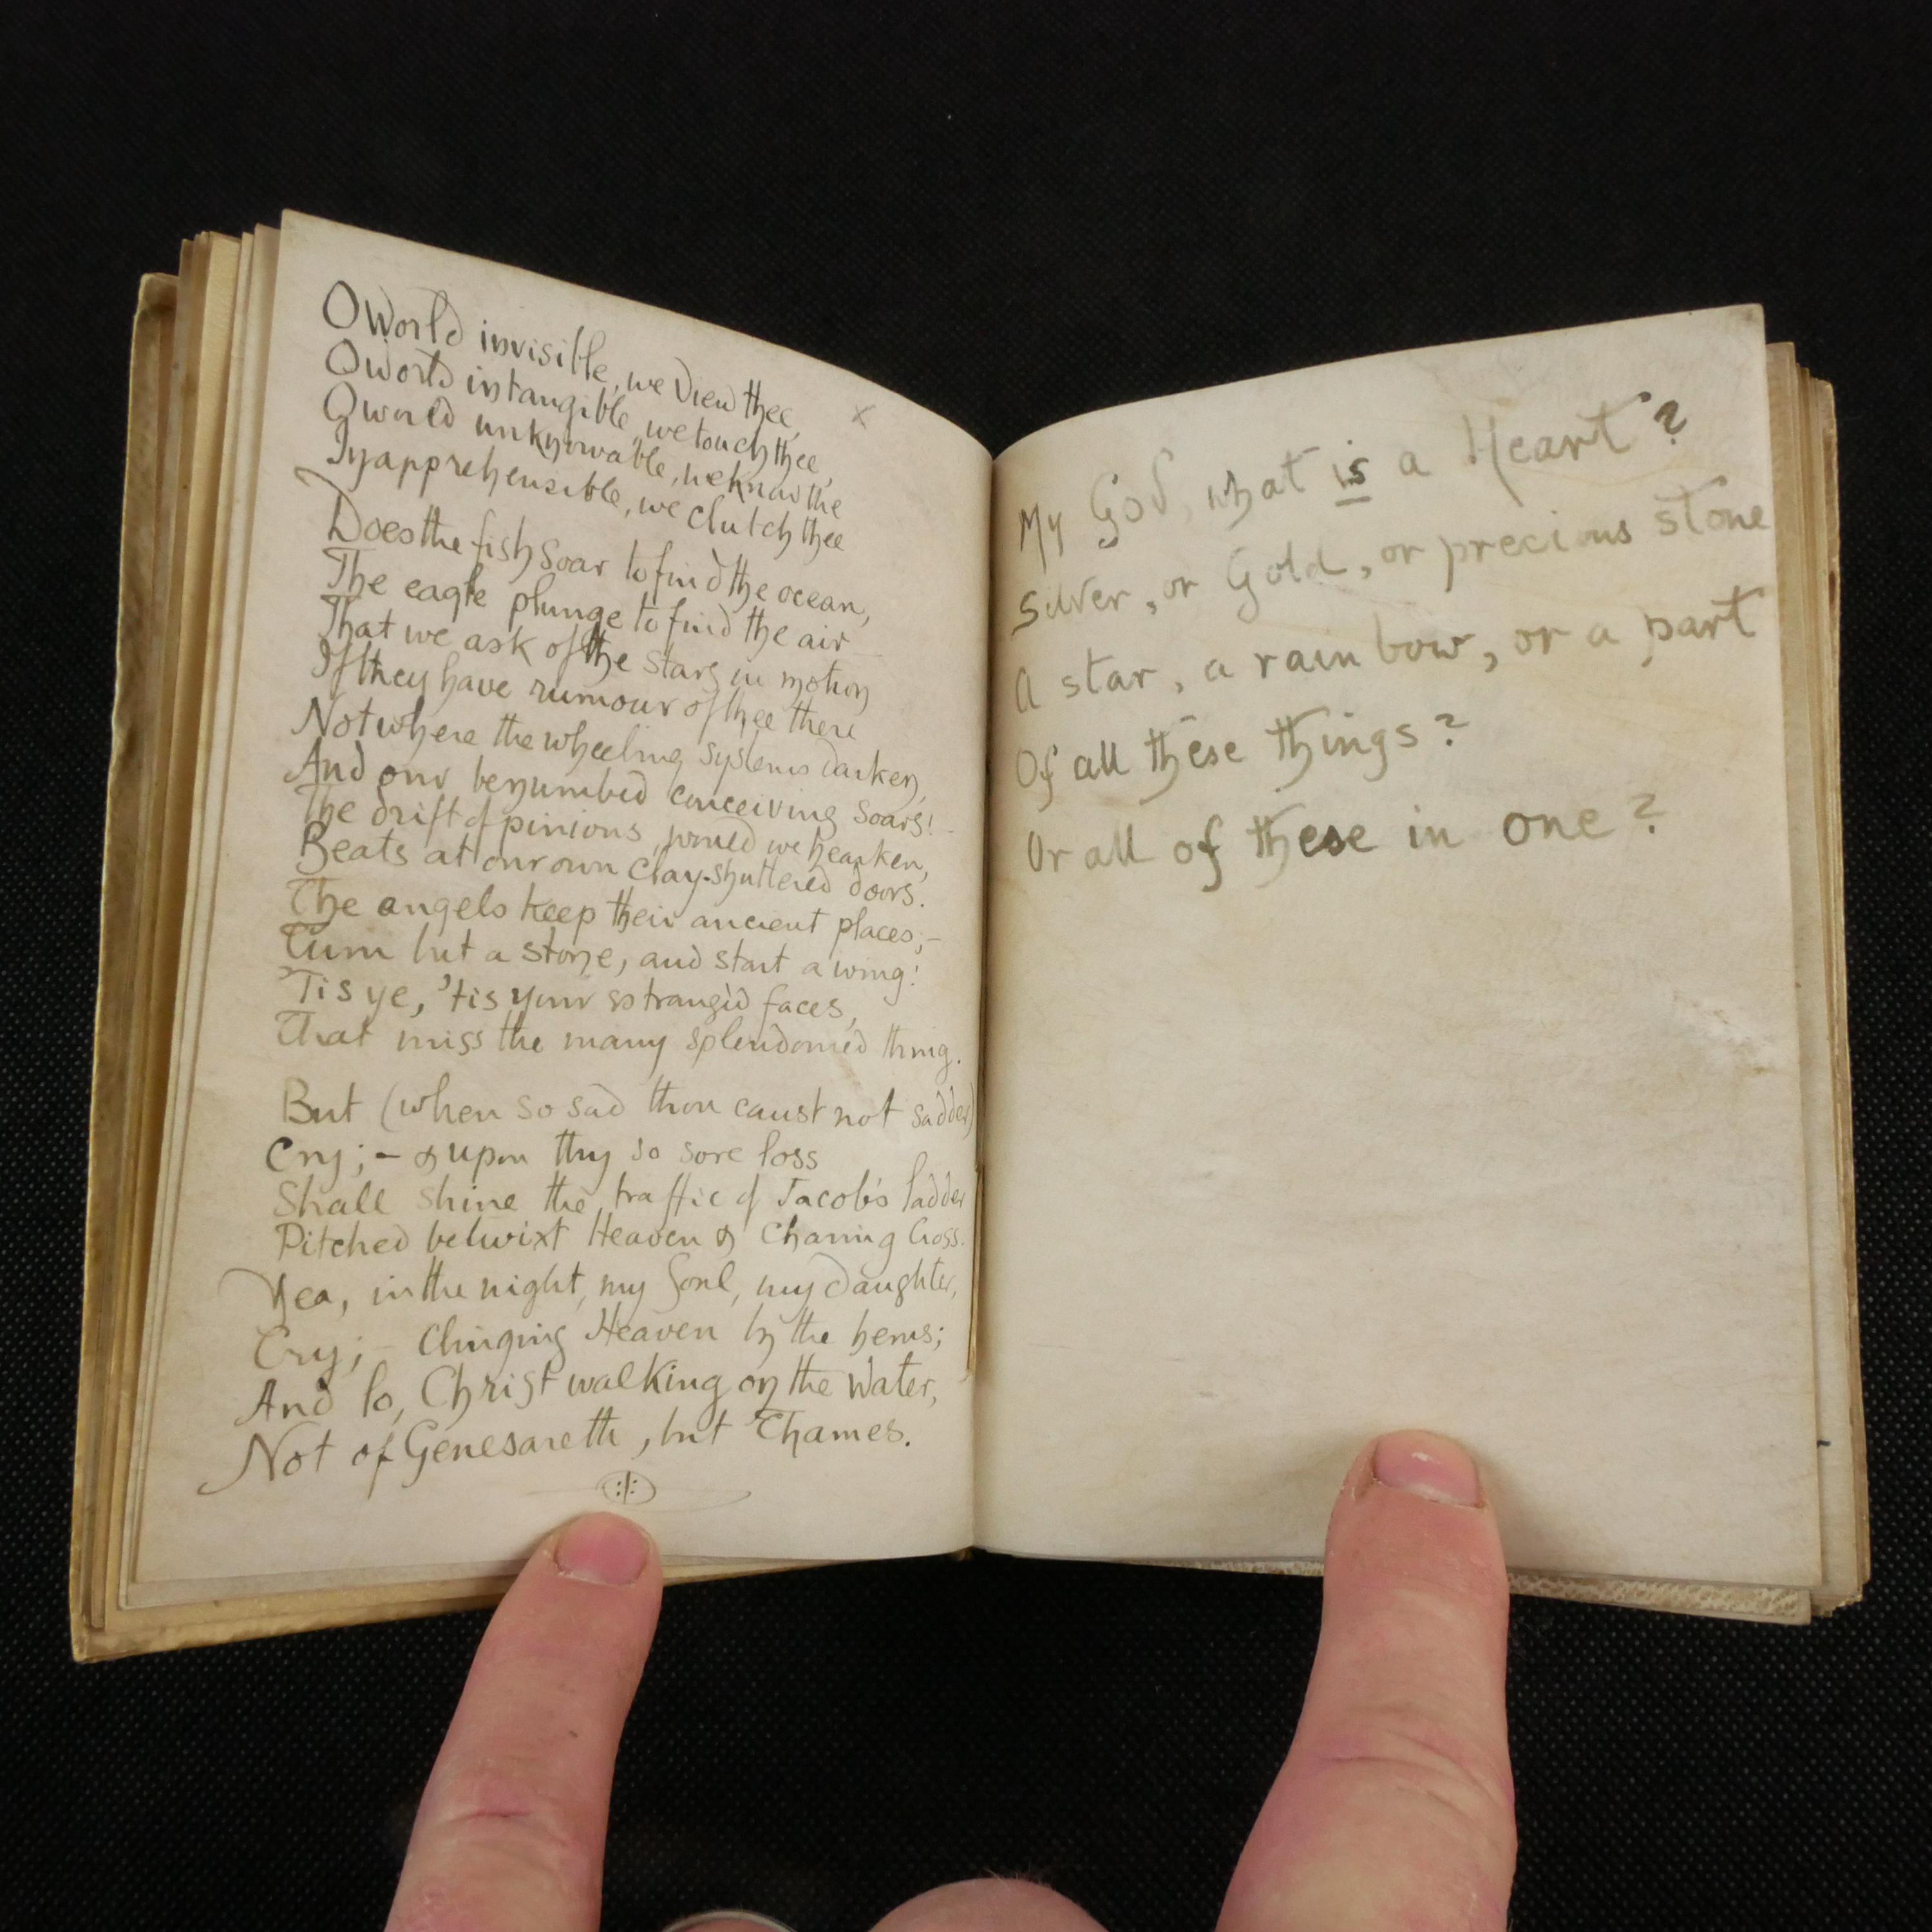 O World invisible, we view thee,
O world intangible, we touch thee,
O world unknowable, we know the
Inapprehensible, we clutch thee
Does the fish soar to find the ocean,
The eagle plunge to find the air
That we ask of the stars in motion
If they have rumour of thee there
Not where the wheeling systems darken,
And our benumbed conceiving soars! -
The drift of pinions, would we hearken,
Beats at our own clay-shuttered doors.
The angels keep their ancient places; -
Turn but a stone, and start a wing!
'Tis ye, 'tis your estrangèd faces,
That miss the many splendoured thing.
But (when so sad thou canst not sadder)
Cry; - & upon thy so sore loss
Shall shine the traffic of Jacob's ladder
Pitched betwixt Heaven & Charing Cross.
Yea, in the night, my Soul, my daughter,
Cry; - Clinging Heaven by the hems;
And lo, Christ walking on the Water,
Not of Genesareth, but Thames.
My God, what is a Heart?
Silver, or Gold, or precious stone
A star, a rainbow, or a part
Of all these things?
Or all of these in one?